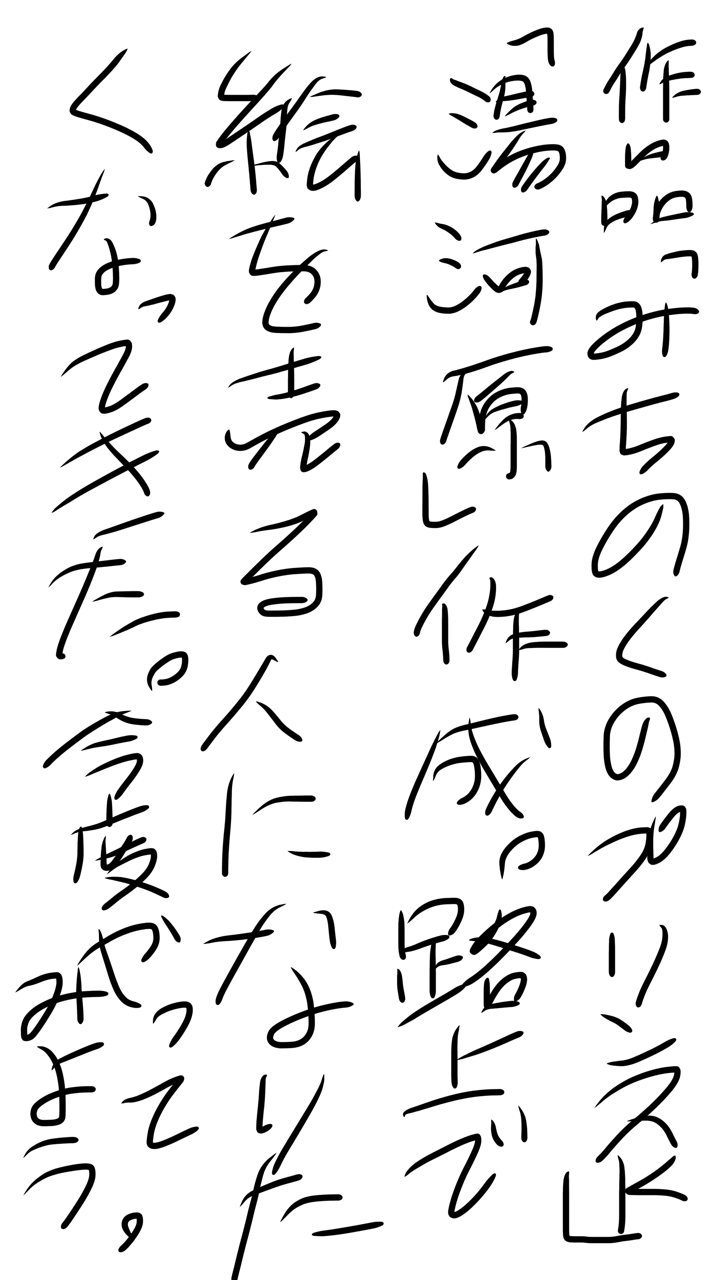 作品「みちのくのプリンスド」
「湯河原」作成。路上で
絵を売る人になりた
くなってきた。今度やって
みよう。